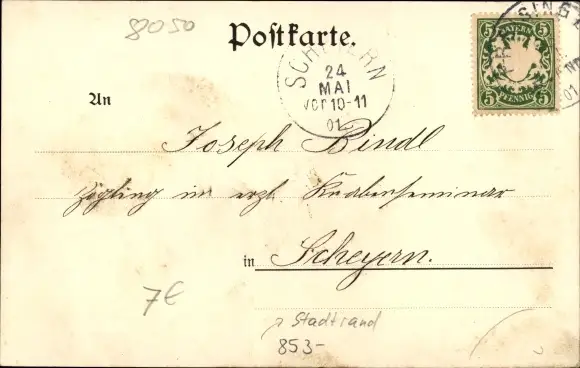 8050
Postkarte.
BAYERN
5 5
5 PFENNIG 5
SING
01
SCHEYERN
24
MAI
VOR 10-11
01
An
Joseph Bindl
Zögling im erzb. Knabenseminar
in Scheyern.
7€
Stadtrand
853-